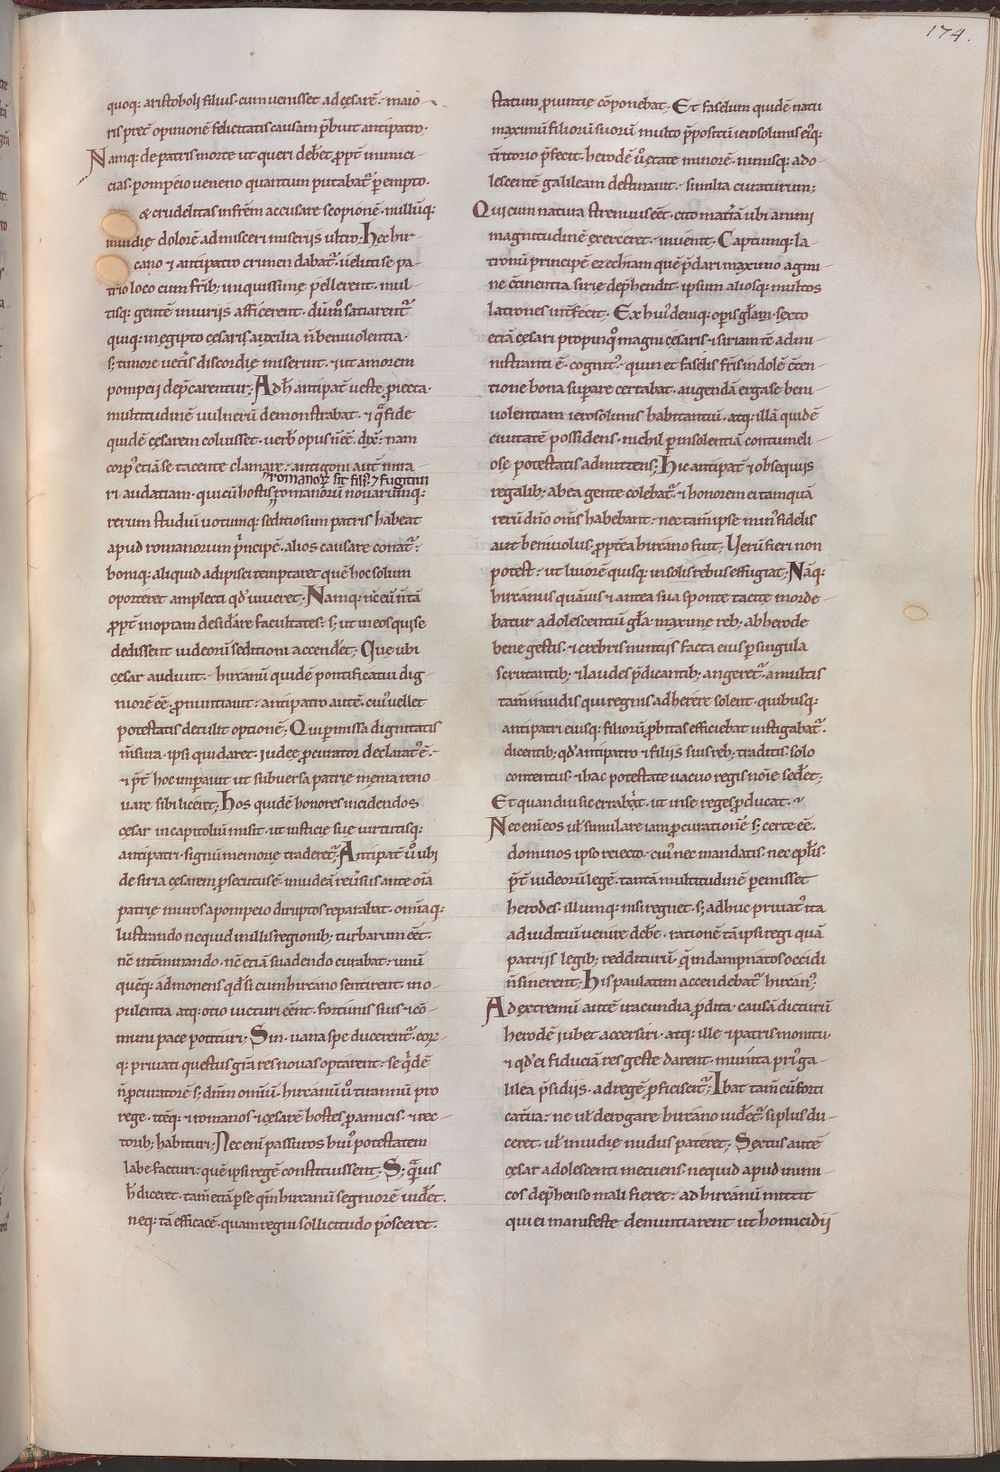 174.
quoq; aristoboli filius. cum venisset ad cęsarē. maio
ris pret̄ opinionē felicitatis causam p̄buit antipatro.
Namq; de patris morte ut queri deb&et prop̄t inimici
cias. pompeio veneno quantum putabat̄ p̄empto.
& crudelitas in frēm accusare scopionē. nulluq;
inuidię dolorē admisceri miserijs ultro; Hęc hir
cano & antipatro crimen dabat̄. ueluti se pa
trio loco cum frīb; iniquissime pellerent. mul
tisq; gentē iniurijs afficerent. dūm̊ satiarent̄
quiq; in egipto cesaris auxilia. n̄ beniuolentia.
s; timore uet̄is discordię miserint. & ut amorem
pompeii dep̄carentur; Ad h̄ antipat̄ ueste proiecta.
multitudinē uulnerū demonstrabat. & q̄ fide
quidē cęsarem coluisset. uerb̄ opus n̄ ēē. dix̄. nam
corp̄ etiā se tacente clamare. antigoni aut̄ mira
romanoꝝ sit fili᷒ & fugitiui
ri audatiam. qui cū hostis romanorū nouarumq;
rerum studiū uotumq; seditiosum patris habeat
apud romanorum p̄ncipē. alios causare conat̄.
boniq; aliquid adipisci temptaret quē hoc solum
oporteret amplecti qđ uiueret. Namq; n̄c eū n̄ tā
prop̄t inopiam desidare facultates. s; ut in eos qui se
dedissent iudeorū seditioni accend&et; Que ubi
cesar audiuit. hircanū quidē pontificatui dig
niorē ēē. pronuntiauit. antipatro autē. cui᷒ uellet
potestatis detulit optionē; Qui permissa dignitatis
m̄sura. ipsi qui daret. iudeę procurator declarat᷒ ē.
& p̄t hoc imp̄auit ut subuersa patrię męnia reno
uare sibi liceret; Hos quidē honores incidendos
cęsar in capitoliū misit. ut iusticie suę uirtutisq;
antipatri. signū memorię traderet̄; Antipat̄ ū ubi
de siria cęsarem prosecutus ē. in iudeā reūsus ante oīa
patrię muros a pompeio diruptos reparabat. omēq;
lustrando nequid in illis regionib; turbarum ēēt.
nc̄ intminando. nc̄ etiā suadendo curabat. unū
quēq; admonens qđ si cum hircano sentirent. in o
pulentia atq; otio uicturi eēnt. fortunis suis & cō
muni pace potituri. Sin. uana spe ducerent̄. eoꝝ
q; priuati quęstus grā res nouas optarent. se q̄dē
n̄ procuratorē s; dnm̄ omniū. hircanū ū tirannū pro
rege. itēq; & romanos & cęsarē hostes pro amicis. & rec
torib; habituri; Nec enī passuros hui᷒ potestatem
labefacturi. quē ipsi regē constituissent; S; q̄uis
h̄ diceret. tam̄ etiā p se q̄m hircanū segniorē uid&et.
neq; tā efficacē. quam regni sollicitudo posceret.
statum prouintię cōponebat. Et faselum quidē natu
maximū filiorū suorū multo p̄positū ierosolimis eiq;
t̄ritorio p̄fecit. herodē ū ętate minorē. nimisq; ado
lescentē galileam destinauit. similia curaturum;
Qui cum natura strenuus eēt. cito mat̄iā ubi animi
magnitudinē exerceret. inuenit. Captumq; la
tronū principē ezechiam quē p̄dari maximo agmi
ne c̄tinentia sirie dep̄hendit. ipsum aliosq; multos
latrones int̄fecit. Ex hui᷒ deniq; opis gl̄am. sexto
etiā cesari propinquo magni cęsaris & siriam tē admi
nistranti ē. cognit᷒. quin et faselus fris indolē c̄ten
tione bona supare certabat. augendā erga se beni
uolentiam ierosolimis habitantiū. atq; illā quidē
ciuitatē possidens. nichil p insolentiā contumeli
ose potestatis admittens; Hic antipat̄ & obsequijs
regalib; ab ea gente colebat̄. & honorem ei tamquā
rerū dn̄o om̄s habebant. nec tam̄ ipse min᷒ fidelis
aut beniuolus. propt̄ea hircano fuit; Uerū fieri non
potest. ut liuorē quisq; in solis rebus effugiat; Nāq;
hircanus quāuis & antea sua sponte tacite morde
batur adolescentiū gl̄a. maxime reb; ab herode
bene gestis. & crebris nuntijs facta eius p singula
scrutantib; & laudes p̄dicantib; angeret̄. a multis
tam̄ inuidis qui regnis adherere solent. quibusq;
antipatri eiusq; filiorū probitas efficiebat instigabat̄.
dicentib; qđ antipatro & filijs suis reb; traditis. solo
contentus. & hac potestate uacuo regis nōīe sed&et;
Et quandiu sic errabit. ut in se reges producat.
Nec enī eos ul̄ simulare iam procurationē s; certe ēē.
dominos ipso reiecto. cui᷒ nec mandatis. nec epl̄is.
p̄t iudeorū legē. tantā multitudinē pemisset
herodes. illumq; nisi regnet. s; adhuc priuat᷒ ita
ad iuditiū uenire deb̄e. rationē tā ipsi regi quā
patrijs legib; redditurū. q̄ indampnatos occidi
n̄ sinerent; His paulatim accendebat̄ hircan᷒;
Ad extremū autē iracundia prodita. causā dicturū
herodē iubet accersiri. atq; ille & patris monitu
& qđ ei fiduciā res geste darent. munita pri᷒ ga
lilea p̄sidijs. ad regē proficiscit̄; Ibat tam̄ cū forti
cat̄ua. ne ul̄ derogare hircano uid&et̄. si plus du
ceret. ul̄ inuidię nudus pateret; Sextus autē
cęsar adolescenti metuens. nequid apud inimi
cos dep̄henso mali fieret. ad hircanū mittit
qui ei manifeste denuntiarent ut homicidij